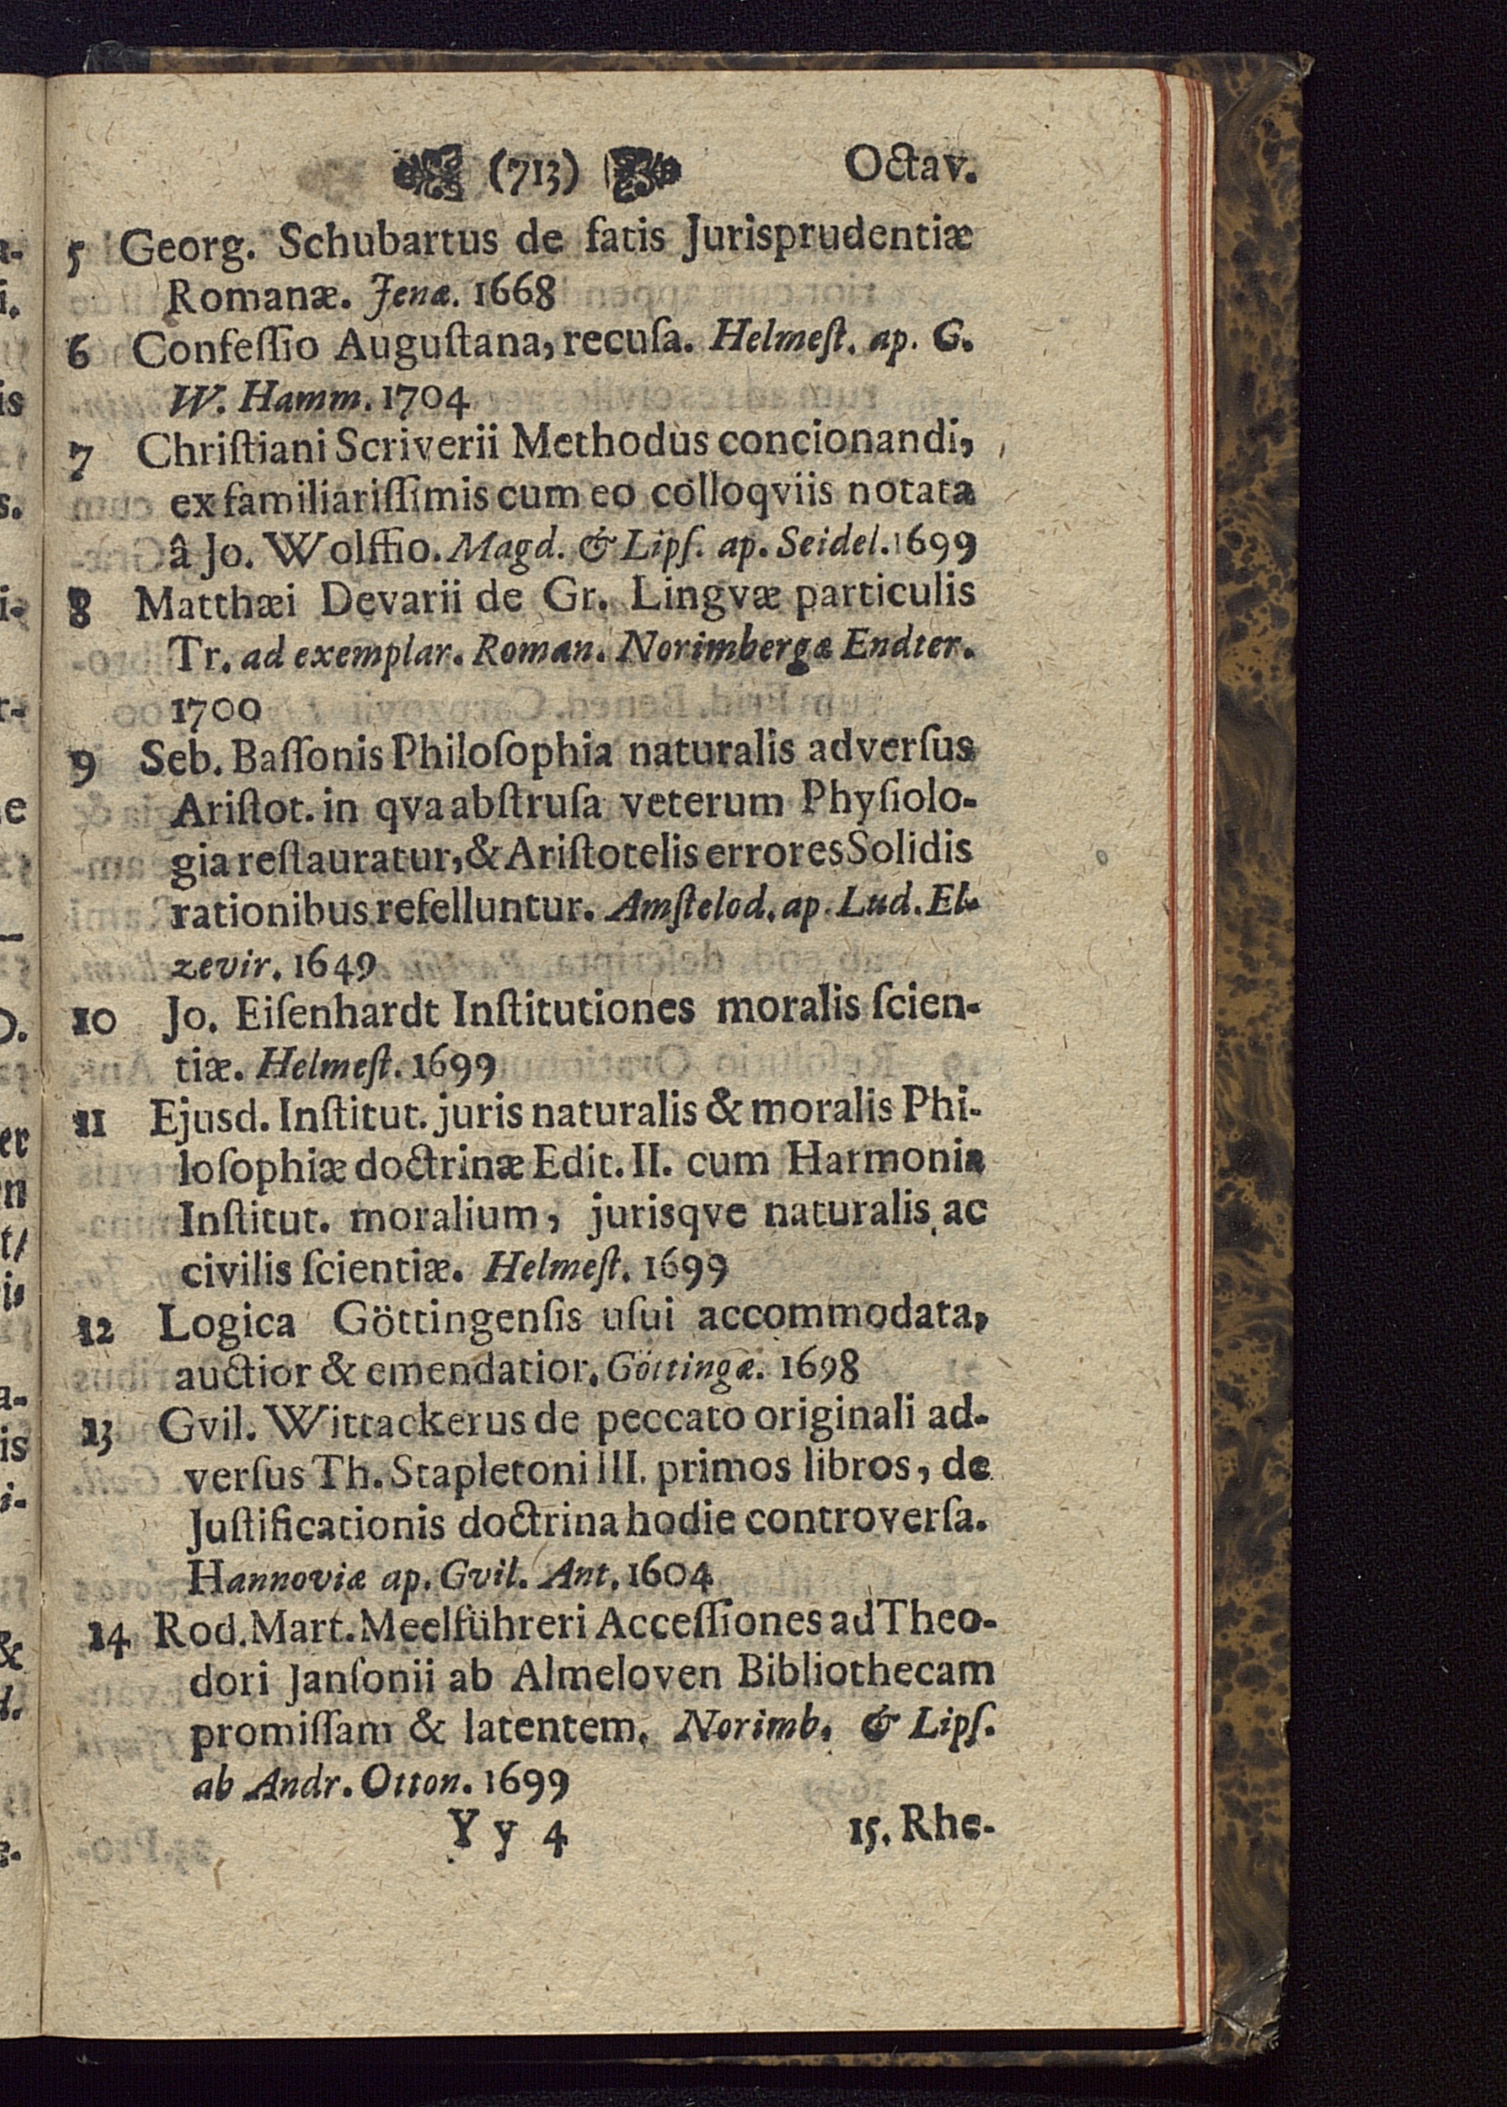 (713) Octav.
5 Georg. Schubartus de fatis Jurisprudentiæ
Romanæ. Jenæ. 1668
6 Confeſſio Auguſtana, recuſa. Helmeſt. ap. G.
W. Hamm. 1704
7 Chriſtiani Scriverii Methodus concionandi,
ex familiariſſimis cum eo colloqviis notata
â Jo. Wolffio. Magd. & Lipſ. ap. Seidel. 1699
8 Matthæi Devarii de Gr. Lingvæ particulis
Tr. ad exemplar. Roman. Norimbergæ Endter.
1700
9 Seb. Baſſonis Philoſophia naturalis adverſus
Ariſtot. in qva abſtruſa veterum Phyſiolo-
gia reſtauratur, & Ariſtotelis errores Solidis
rationibus refelluntur. Amſtelod. ap. Lud. El-
zevir. 1649
10 Jo. Eiſenhardt Inſtitutiones moralis ſcien-
tiæ. Helmeſt. 1699
11 Ejusd. Inſtitut. juris naturalis & moralis Phi-
loſophiæ doctrinæ Edit. II. cum Harmonia
Inſtitut. moralium, jurisqve naturalis ac
civilis ſcientiæ. Helmeſt. 1699
12 Logica Göttingenſis uſui accommodata,
auctior & emendatior. Göttingæ. 1698
13 Gvil. Wittackerus de peccato originali ad-
verſus Th. Stapletoni III. primos libros, de
Juſtificationis doctrina hodie controverſa.
Hannoviæ ap. Gvil. Ant. 1604
14 Rod. Mart. Meelführeri Acceſſiones ad Theo-
dori Janſonii ab Almeloven Bibliothecam
promiſſam & latentem. Norimb. & Lipſ.
ab Andr. Otton. 1699
Y y 4 15. Rhe-